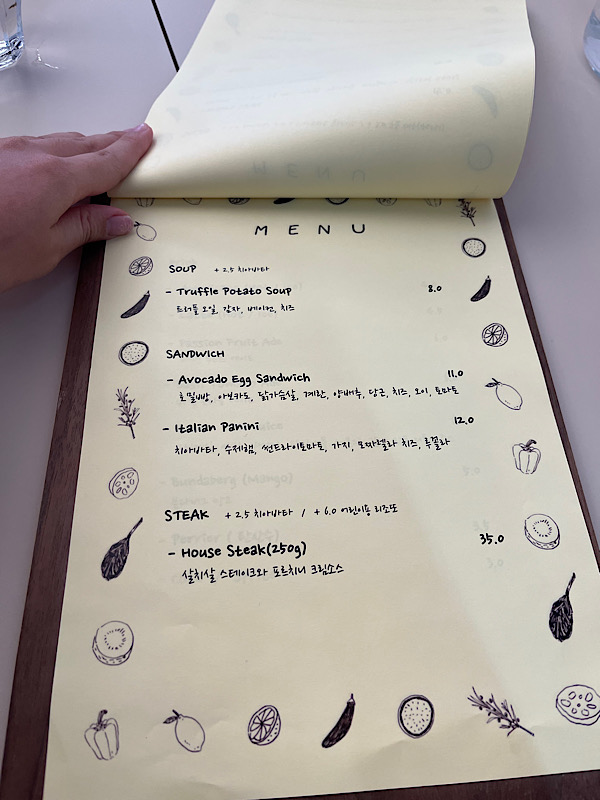 MENU
SOUP + 2.5 치아바타
- Truffle Potato Soup 8.0
트러플 오일, 감자, 베이컨, 치즈
SANDWICH
- Avocado Egg Sandwich 11.0
호밀빵, 아보카도, 닭가슴살, 계란, 양배추, 당근, 치즈, 오이, 토마토
- Italian Panini 12.0
치아바타, 수제햄, 썬드라이토마토, 가지, 모짜렐라 치즈, 루꼴라
STEAK + 2.5 치아바타 / + 6.0 어린이용 리조또
- House Steak(250g) 35.0
살치살 스테이크와 포르치니 크림소스